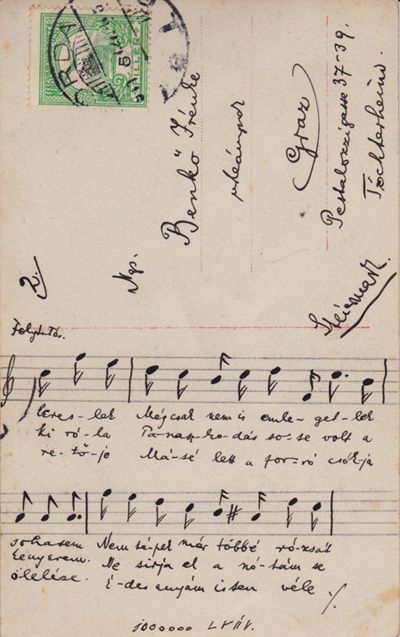 2.
Ngs.
Benkő Irénke
urleánynak
Graz
Pestalozzigasse 37-39.
Töchterheim
Steiermark
Folytatás.
keres-lek Mégcsak nem is emle-get-lek
ki ró-la Pa-nasz-ko-dás so-se volt a
re-tő-je Má-sé lett a for-ró csókja
sohasem Nem té-pek már többé ró-zsát
kenyerem. Ne sirja el a nó-tám se
ölelése. É-des anyám isten véle
1000000